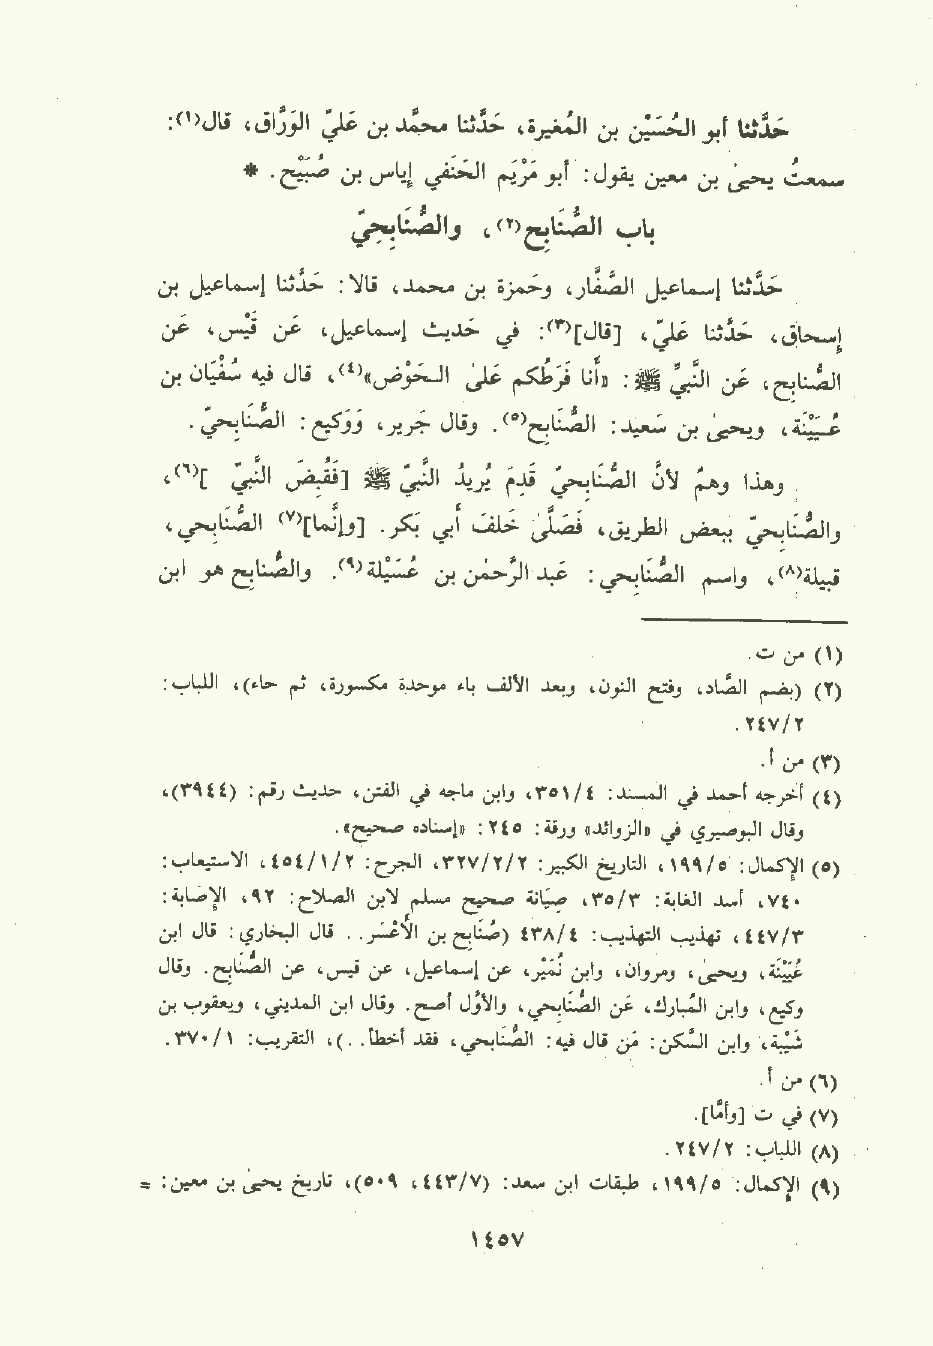 حَدَّثنا أبو الحُسَيْن بن المُغيرة، حَدَّثنا محمَّد بن عَليّ الوَرَّاق، قال(١):
سمعتُ يحيىٰ بن معين يقول: أبو مَرْيَم الحَنَفي إياس بن صُبَيْح. *
باب الصُّنَابِح(٢)، والصُّنَابِحِيّ
حَدَّثنا إسماعيل الصَّفَّار، وحَمزة بن محمد، قالا: حَدَّثنا إسماعيل بن
إسحاق، حَدَّثنا عَليّ، [قال](٣): في حَديث إسماعيل، عَن قَيْس، عَن
الصُّنابح، عَن النَّبيِّ ﷺ: «أَنا فَرَطُكم عَلىٰ الحَوْض»(٤)، قال فيه سُفْيَان بن
عُيَيْنَة، ويحيىٰ بن سَعيد: الصُّنَابِح(٥). وقال جَرير، ووَكيع: الصُّنَابِحيّ.
وهذا وهمٌ لأنَّ الصُّنَابِحيّ قَدِمَ يُريدُ النَّبيّ ﷺ [فَقُبِضَ النَّبيّ ](٦)،
والصُّنَابِحيّ ببعض الطريق، فَصَلَّىٰ خَلفَ أبي بَكر. [وإنَّما](٧) الصُّنَابِحي،
قبيلة(٨)، واسم الصُّنَابِحي: عَبد الرَّحمٰن بن عُسَيْلة(٩). والصُّنابِح هو ابن
(١) من ت.
(٢) (بضم الصَّاد، وفتح النون، وبعد الألف باء موحدة مكسورة، ثم حاء)، اللباب:
٢٤٧/٢.
(٣) من أ.
(٤) أخرجه أحمد في المسند: ٣٥١/٤، وابن ماجه في الفتن، حديث رقم: (٣٩٤٤)،
وقال البوصيري في «الزوائد» ورقة: ٢٤٥: «إسناده صحيح».
(٥) الإكمال: ١٩٩/٥، التاريخ الكبير: ٣٢٧/٢/٢، الجرح: ٤٥٤/١/٢، الاستيعاب:
٧٤٠، أسد الغابة: ٣٥/٣، صِيَانة صحيح مسلم لابن الصلاح: ٩٢، الإصَابة:
٤٤٧/٣، تهذيب التهذيب: ٤٣٨/٤ (صُنَابِح بن الأَعْسَر.. قال البخاري: قال ابن
عُيَيْنَة، ويحيىٰ، ومروان، وابن نُمَيْر، عن إسماعيل، عن قيس، عن الصُّنَابح. وقال
وكيع، وابن المُبَارك، عَن الصُّنَابحي، والأوَّل أصح. وقال ابن المديني، ويعقوب بن
شَيْبة، وابن السَّكن: مَن قال فيه: الصُّنَابحي، فقد أخطأ. .)، التقريب: ٣٧٠/١.
(٦) من أ.
(٧) في ت [وأمَّا].
(٨) اللباب: ٢٤٧/٢.
(٩) الإكمال: ١٩٩/٥، طبقات ابن سعد: (٤٤٣/٧، ٥٠٩)، تاريخ يحيىٰ بن معين: =
١٤٥٧